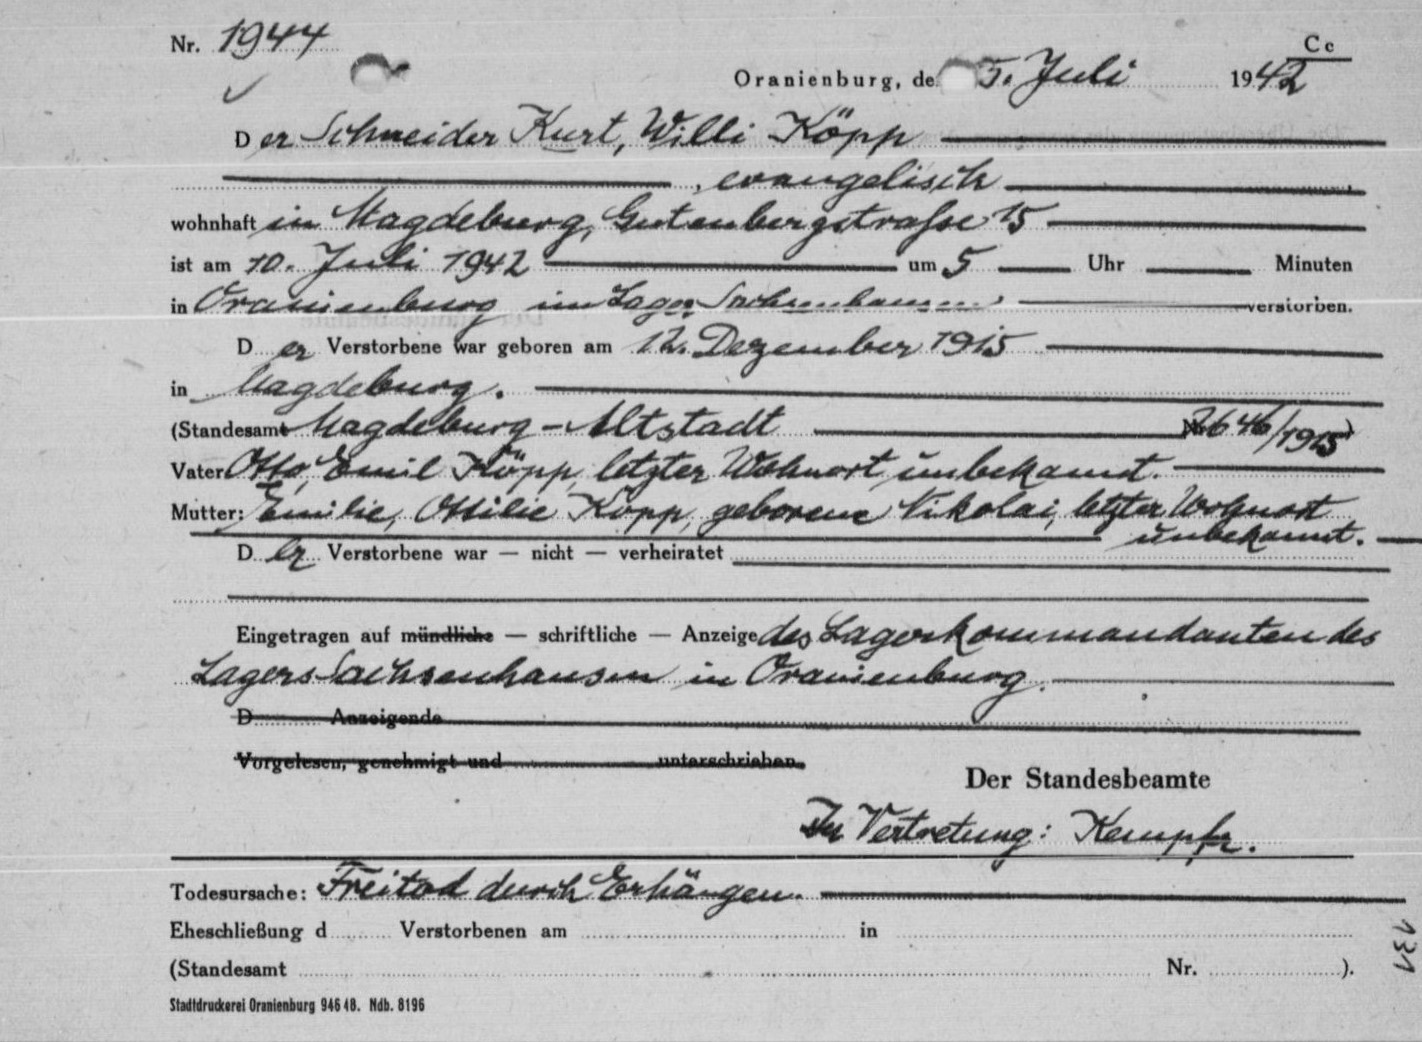 Nr. 1944
Cc
Oranienburg, de 5. Juli 1942
Der Schneider Kurt, Willi Köpp
, evangelisch
wohnhaft in Magdeburg, Gutenbergstrasse 15
ist am 10. Juli 1942 um 5 Uhr Minuten
in Oranienburg im Lager Sachsenhausen verstorben.
Der Verstorbene war geboren am 12. Dezember 1915
in Magdeburg.
(Standesamt Magdeburg-Altstadt 2646/1915)
Vater Otto, Emil Köpp, letzter Wohnort unbekannt.
Mutter: Emilie, Ottilie Köpp, geborene Nikolai, letzter Wohnort
unbekannt.
Der Verstorbene war — nicht — verheiratet
Eingetragen auf mündliche — schriftliche — Anzeige des Lagerkommandanten des
Lagers Sachsenhausen in Oranienburg.
D Anzeigende
Vorgelesen, genehmigt und unterschrieben.
Der Standesbeamte
In Vertretung:
Todesursache: Freitod durch Erhängen.
Eheschließung d Verstorbenen am in
(Standesamt Nr. ).
131
Stadtdruckerei Oranienburg 946 48. Ndb. 8196